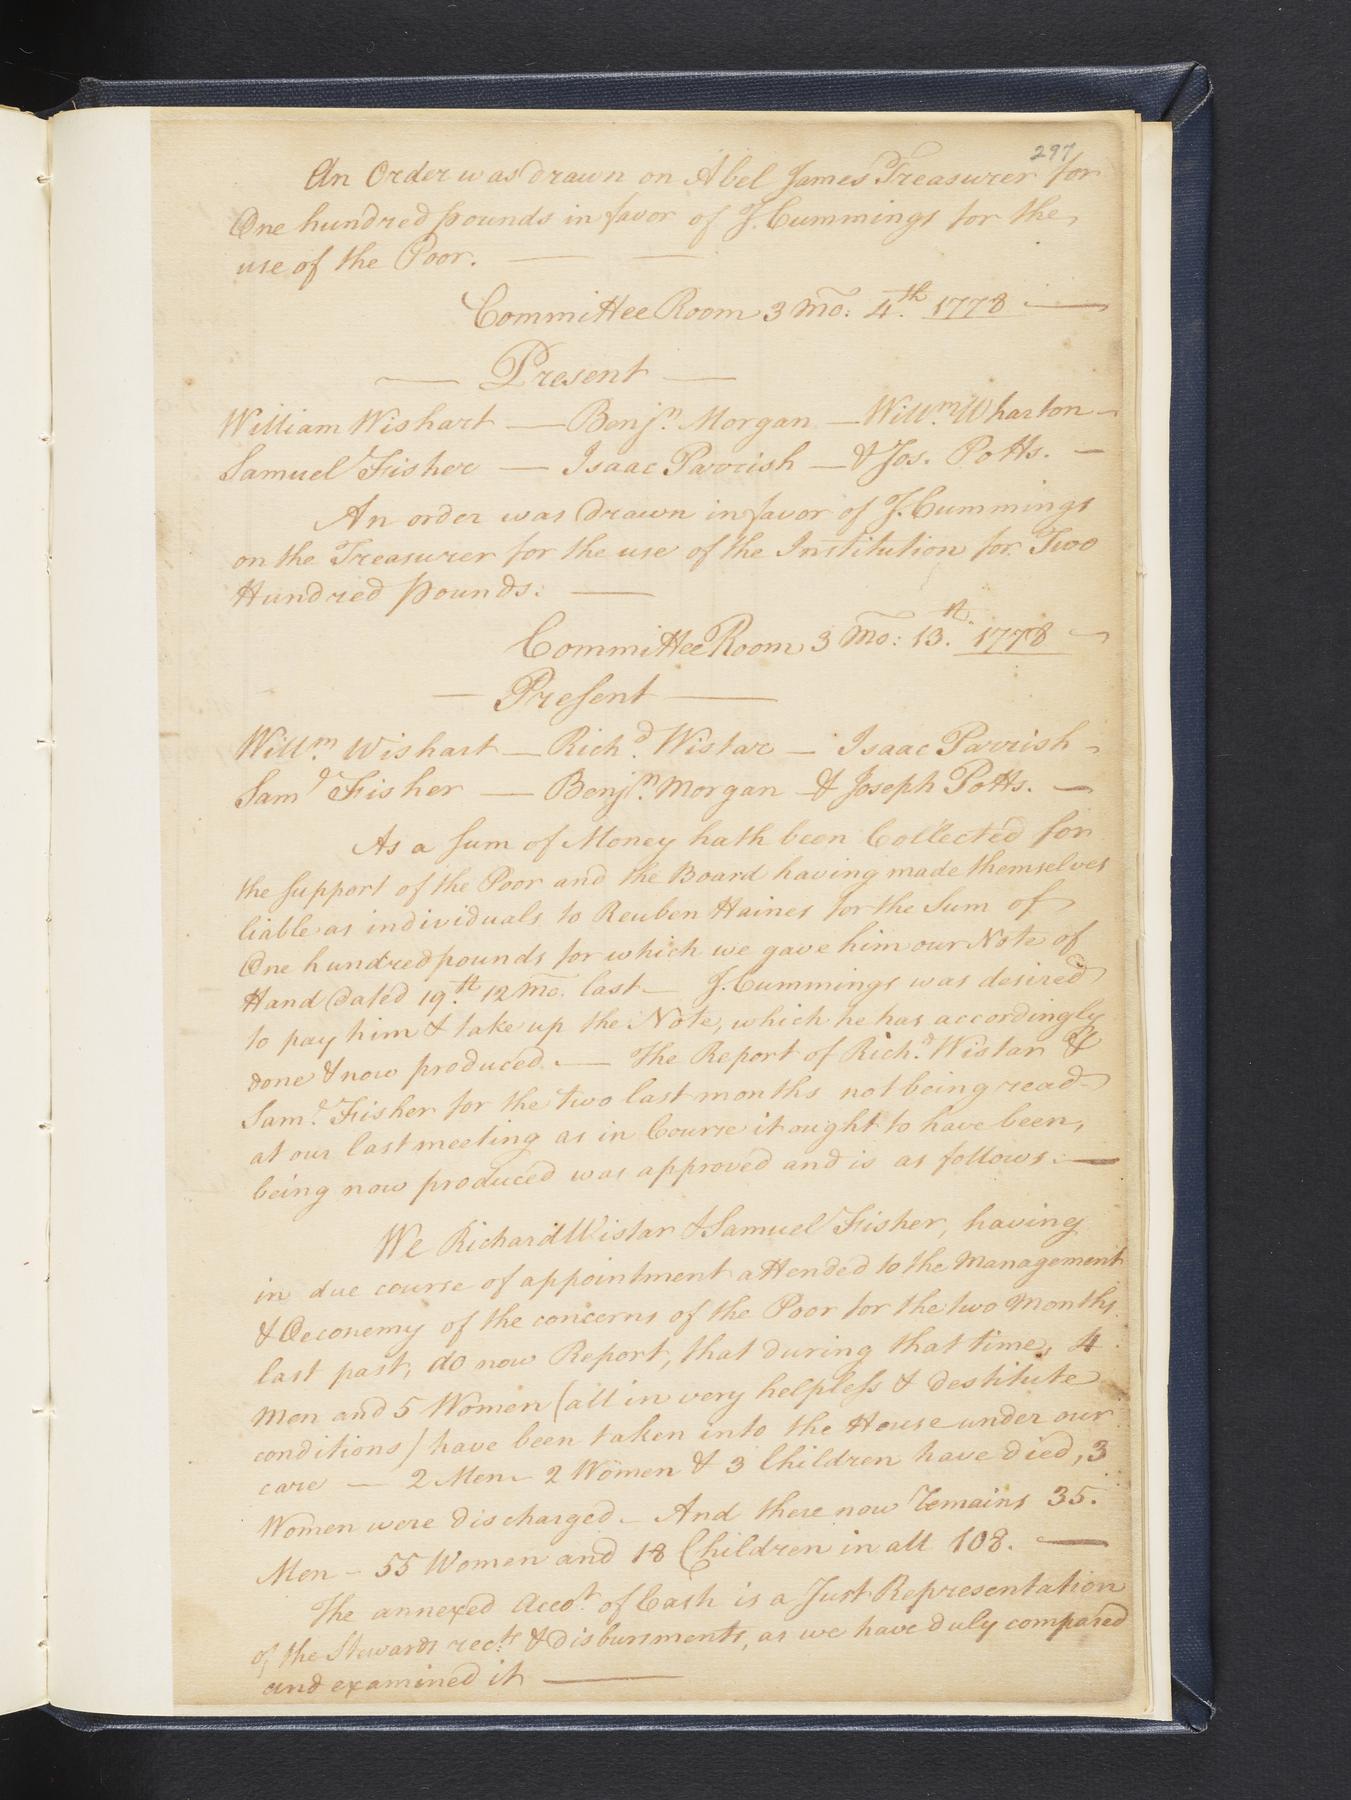 297
An Order was drawn on Abel James Treasurer for
One hundred pounds in favor of J. Cummings for the
use of the Poor. — —
Committee Room 3 mo: 4th. 1778 —
— Present —
William Wishart — Benjn. Morgan — Willm. Wharton —
Samuel Fisher — Isaac Parrish — & Jos. Potts. —
An order was drawn in favor of J. Cummings
on the Treasurer for the use of the Institution for Two
Hundred pounds: —
Committee Room 3 mo: 13.th 1778 —
— Present —
Willm. Wishart — Richd. Wistar — Isaac Parrish —
Saml Fisher — Benjn. Morgan — & Joseph Potts. —
As a Sum of Money hath been Collected for
the support of the Poor and the Board having made themselves
liable as individuals to Reuben Haines for the Sum of
One hundred pounds for which we gave him our Note of
Hand dated 19.th 12 mo. last — J. Cummings was desired
to pay him & take up the Note, which he has accordingly
done & now produced. — The Report of Richd. Wistar &
Saml. Fisher for the two last months not being read
at our last meeting as in Course it ought to have been,
being now produced was approved and is as follows: —
We Richard Wistar & Samuel Fisher, having
in due course of appointment attended to the Management
& Oeconemy of the concerns of the Poor for the two Months
last past, do now Report, that during that time, 4
Men and 5 Women (all in very helpless & destitute
conditions) have been taken into the House under our
care — 2 Men 2 Women & 3 Children have died, 3
Women were discharged — And there now remains 35.
Men — 55 Women and 18 Children in all 108. —
The annexed Accot. of Cash is a Just Representation
of the Stewards rects. & disbursments, as we have duly compared
and examined it —